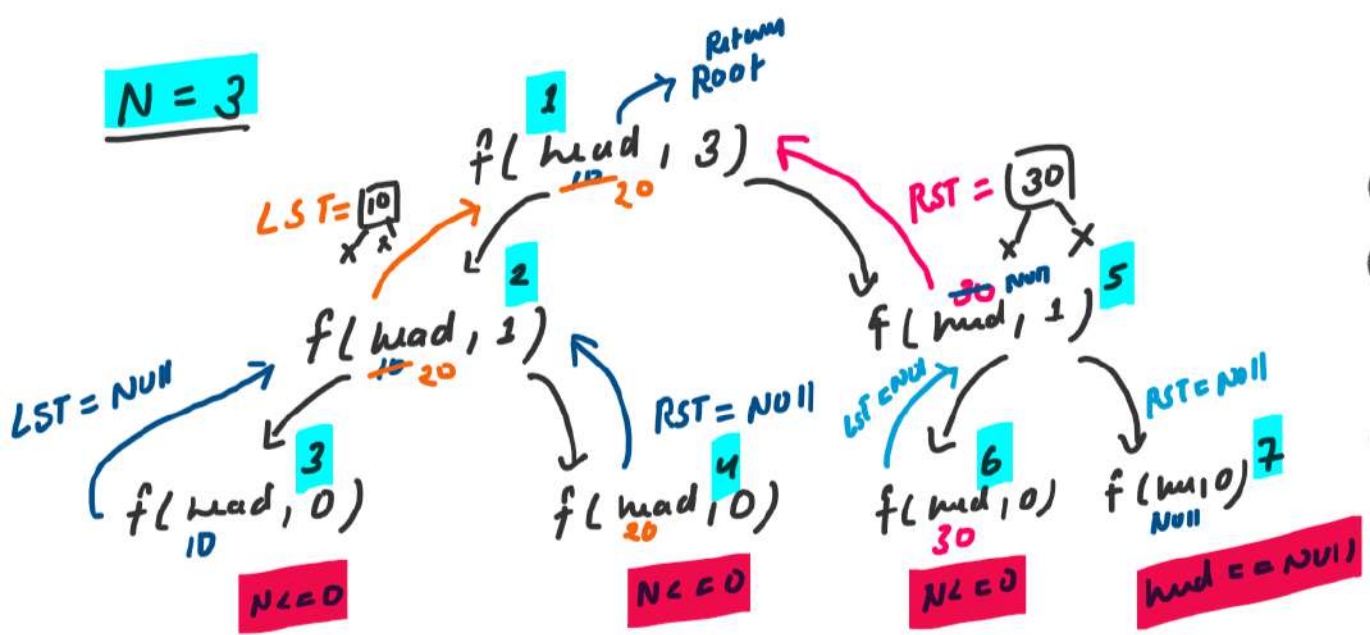 Return
Root
N = 3
1
f( head , 3 )
10 20
LST = 10
x x
RST = 30
x x
2
f( head , 1 )
10 20
30 Null
5
f( head , 1 )
LST = NUll
RST = NUll
LST = NUll
RST = NUll
3
f( head , 0 )
10
4
f( head , 0 )
20
6
f( head , 0 )
30
7
f( hu , 0 )
Null
N<=0
N<=0
N<=0
head == NUll